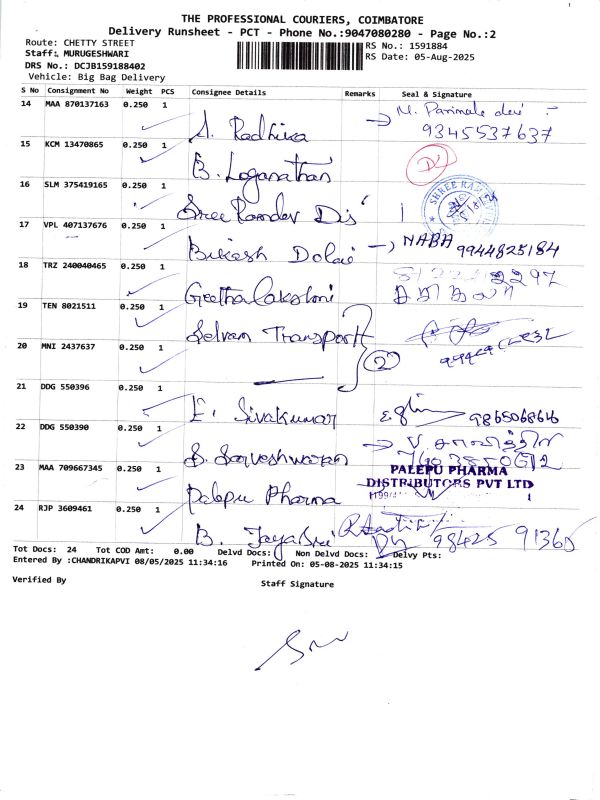 THE PROFESSIONAL COURIERS, COIMBATORE
Delivery Runsheet - PCT - Phone No.:9047080280 - Page No.:2
Route: CHETTY STREET
RS No.: 1591884
Staff: MURUGESHWARI
RS Date: 05-Aug-2025
DRS No.: DCJB159188402
Vehicle: Big Bag Delivery
S No Consignment No Weight PCS Consignee Details Remarks Seal & Signature
14 MAA 870137163 0.250 1 A. Radhika → M. Parimala devi
9345537637
15 KCM 13470865 0.250 1 B. Loganathan
16 SLM 375419165 0.250 1 Sree Ramdev Dis
17 VPL 407137676 0.250 1 Bikesh Dolai → NABA 9944825184
18 TRZ 240040465 0.250 1 Geethalakshmi
19 TEN 8021511 0.250 1 Selvam Transport
20 MNI 2437637 0.250 1 2
21 DDG 550396 0.250 1 E. Sivakumar
22 DDG 550390 0.250 1 S. Sarveshwaran
23 MAA 709667345 0.250 1 Palepu Pharma
PALEPU PHARMA
DISTRIBUTORS PVT LTD
24 RJP 3609461 0.250 1 B. Jayasri 98425 91365
Tot Docs: 24 Tot COD Amt: 0.00 Delvd Docs: Non Delvd Docs: Delvy Pts:
Entered By :CHANDRIKAPVI 08/05/2025 11:34:16 Printed On: 05-08-2025 11:34:15
Verified By
Staff Signature